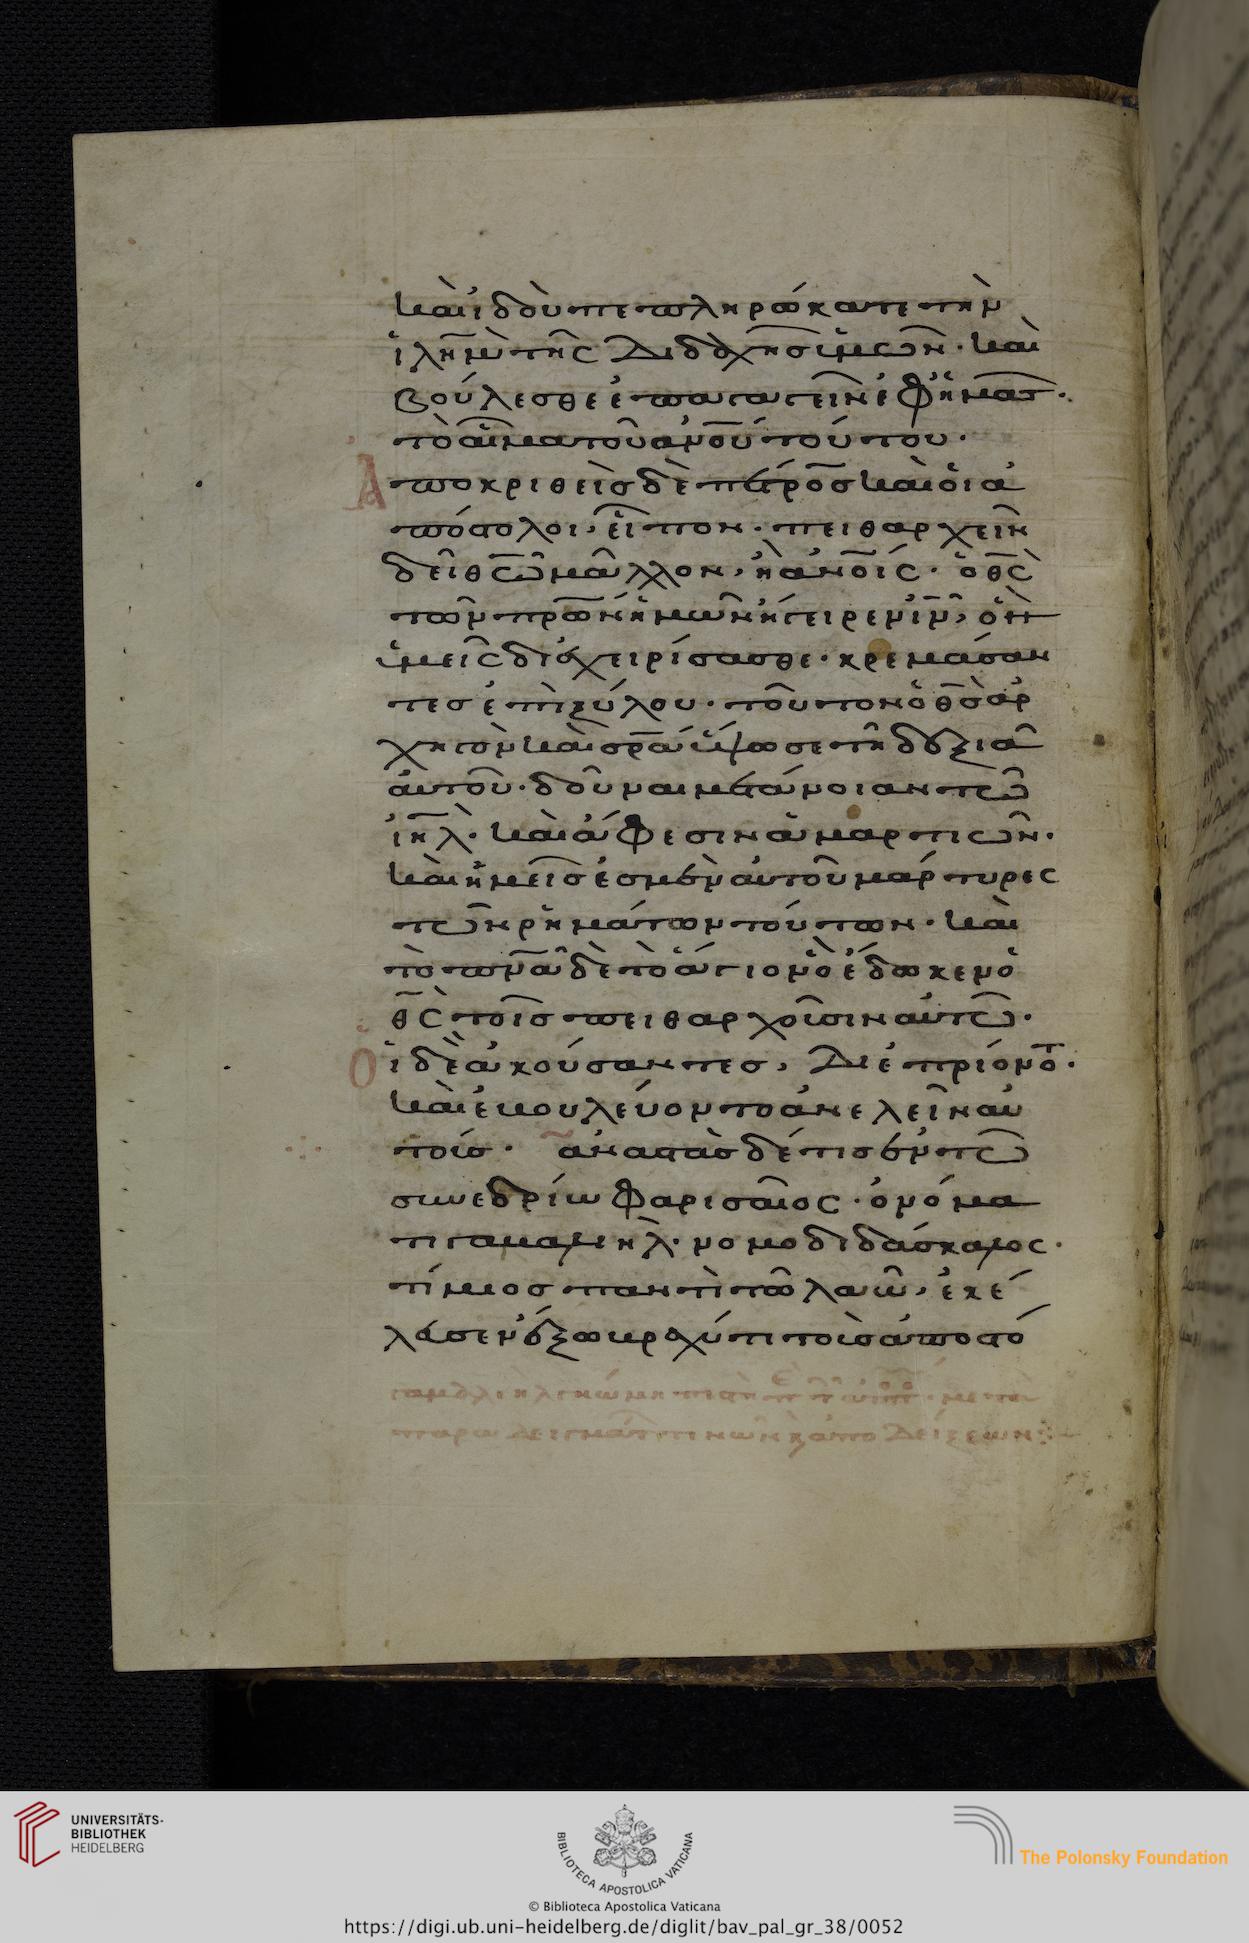 καὶ ἰδοὺ πεπληρώκατε τὴν
ἱλῆμ τῆς διδαχῆς ὑμῶν· καὶ
βούλεσθε ἐπαγαγεῖν ἐφ' ἡμᾶς·
τὸ αἷμα τοῦ ανου τούτου·
Ἀποκριθεὶς δὲ πέτρος καὶ οἱ ἀ
πόστολοι, εἶπον· πειθαρχεῖν
δεῖ θω μᾶλλον, ἢ ανοις· ὁ θς
τῶν πρων ἡμῶν ἤγειρεν ιν, ὃν
ὑμεῖς διεχειρίσασθε· κρεμάσαν
τες ἐπὶ ξύλου· τοῦτον ὁ θς ἀρ
χηγὸν καὶ σρα ὕψωσε τῆ δεξιᾶ
αὐτοῦ· δοῦναι μετάνοιαν τῶ
ιηλ· καὶ ἄφεσιν ἁμαρτιῶν·
καὶ ἡμεῖς ἐσμὲν αὐτοῦ μάρτυρες
τῶν ῥημάτων τούτων· καὶ
τὸ πνα δὲ τὸ ἅγιον ὃ ἔδωκεν ὁ
θς τοῖς πειθαρχοῦσιν αὐτῶ·
Οἱ δὲ ἀκούσαντες, διεπρίοντο·
καὶ ἐβουλεύοντο ἀνελεῖν αὐ
τούς· ἀναστὰς δέ τις ἐν τῶ
συνεδρίω φαρισαῖος· ὀνόμα
τι γαμαλιηλ· νομοδιδάσκαλος·
τίμιος παντὶ τῶ λαῶ, ἐκέ
λευσεν ἔξω βραχύ τι τοὺς ἀποστό
γαμαλιὴλ γνώμη πιστὴ
παραδειγμάτων τινῶν κ ἀποδείξεων
UNIVERSITÄTS-
BIBLIOTHEK
HEIDELBERG
BIBLIOTECA APOSTOLICA VATICANA
The Polonsky Foundation
© Biblioteca Apostolica Vaticana
https://digi.ub.uni-heidelberg.de/diglit/bav_pal_gr_38/0052